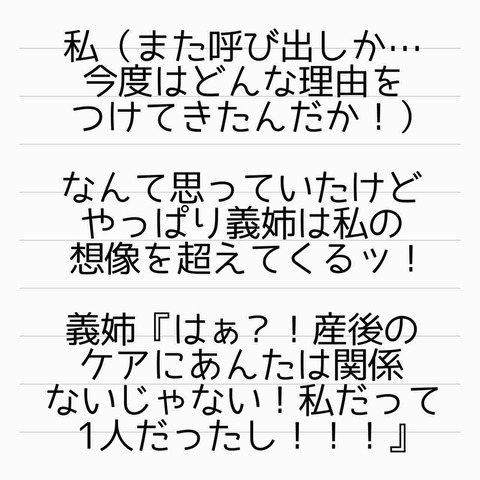 私（また呼び出しか…
今度はどんな理由を
つけてきたんだか！）
なんて思っていたけど
やっぱり義姉は私の
想像を超えてくるッ！
義姉『はぁ？！産後の
ケアにあんたは関係
ないじゃない！私だって
1人だったし！！！』